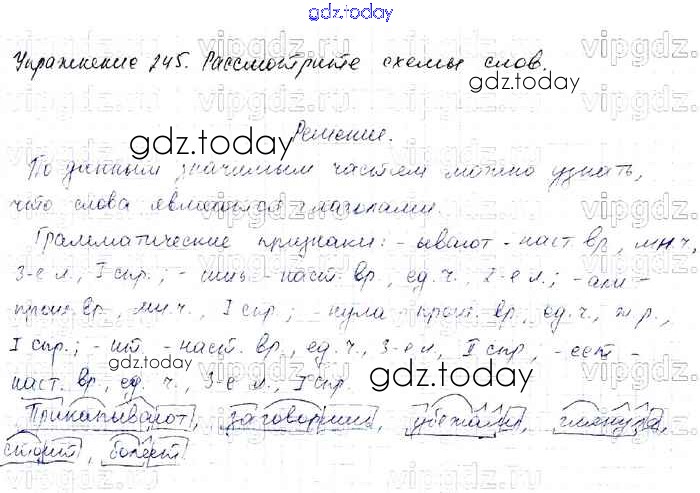 gdz.today
Упражнение 245. Рассмотрите схемы слов.
gdz.today
Решение.
gdz.today
По данным значимым частям можно узнать,
что слова являются глаголами.
Грамматические признаки: -ывают - наст. вр., мн. ч.,
3-е л., I спр.; -ишь - наст. вр., ед. ч., 2-е л.; -али -
прош. вр., мн. ч., I спр.; -нула - прош. вр., ед. ч., ж. р.,
I спр.; -ит - наст. вр., ед. ч., 3-е л., II спр., -еет -
наст. вр., ед. ч., 3-е л., I спр.
gdz.today
gdz.today
Прикапывают, заговоришь, убежали, глянула,
стоит, болеет
vipgdz.net